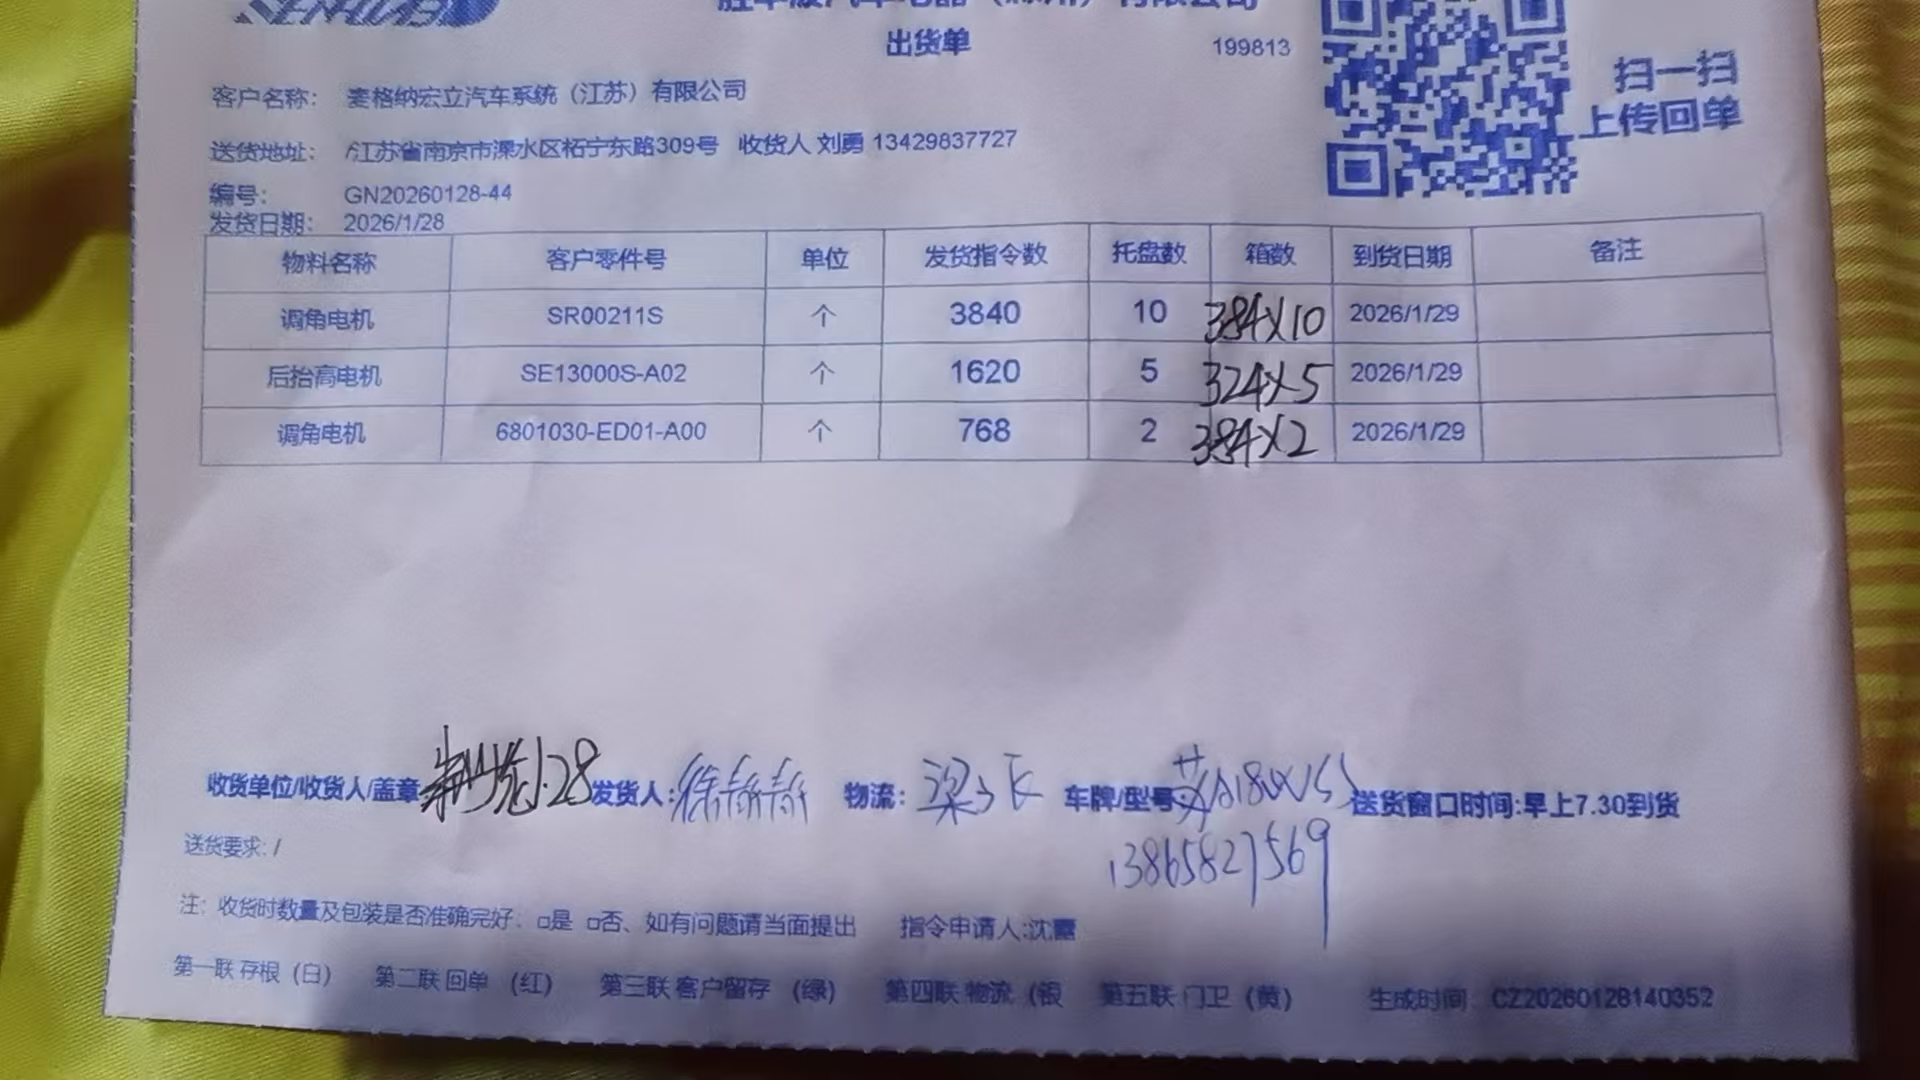 出货单
199813
扫一扫
上传回单
客户名称： 麦格纳宏立汽车系统（江苏）有限公司
送货地址： /江苏省南京市溧水区柘宁东路309号 收货人 刘勇 13429837727
编号： GN20260128-44
发货日期： 2026/1/28
物料名称 客户零件号 单位 发货指令数 托盘数 箱数 到货日期 备注
调角电机 SR00211S 个 3840 10 384×10 2026/1/29
后抬高电机 SE13000S-A02 个 1620 5 324×5 2026/1/29
调角电机 6801030-ED01-A00 个 768 2 384×2 2026/1/29
收货单位/收货人/盖章 1.28 发货人：徐静静 物流： 车牌/型号 送货窗口时间:早上7.30到货
13865827569
送货要求: /
注：收货时数量及包装是否准确完好：□是 □否、如有问题请当面提出 指令申请人:沈露
第一联 存根（白） 第二联 回单 （红） 第三联 客户留存 （绿） 第四联 物流（银 第五联 门卫（黄） 生成时间 CZ20260128140352